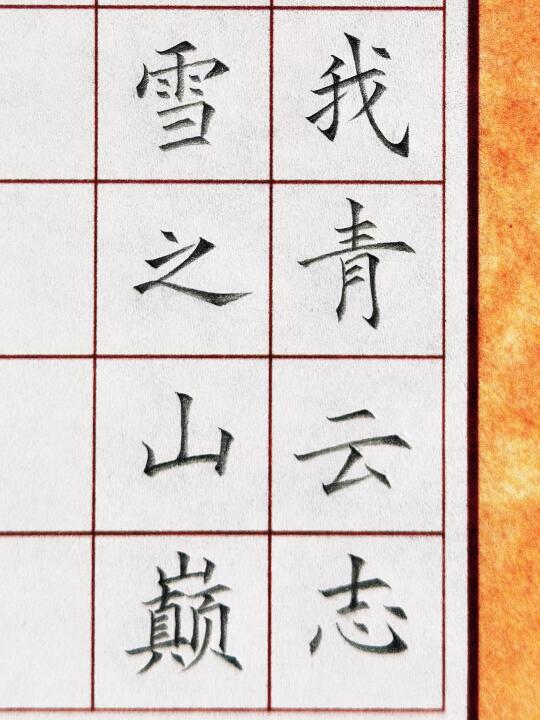 我青云志
雪之山巅